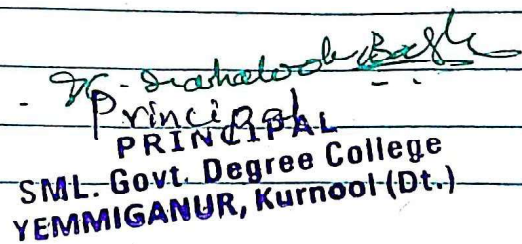 Principal
PRINCIPAL
SML. Govt. Degree College
YEMMIGANUR, Kurnool (Dt.)